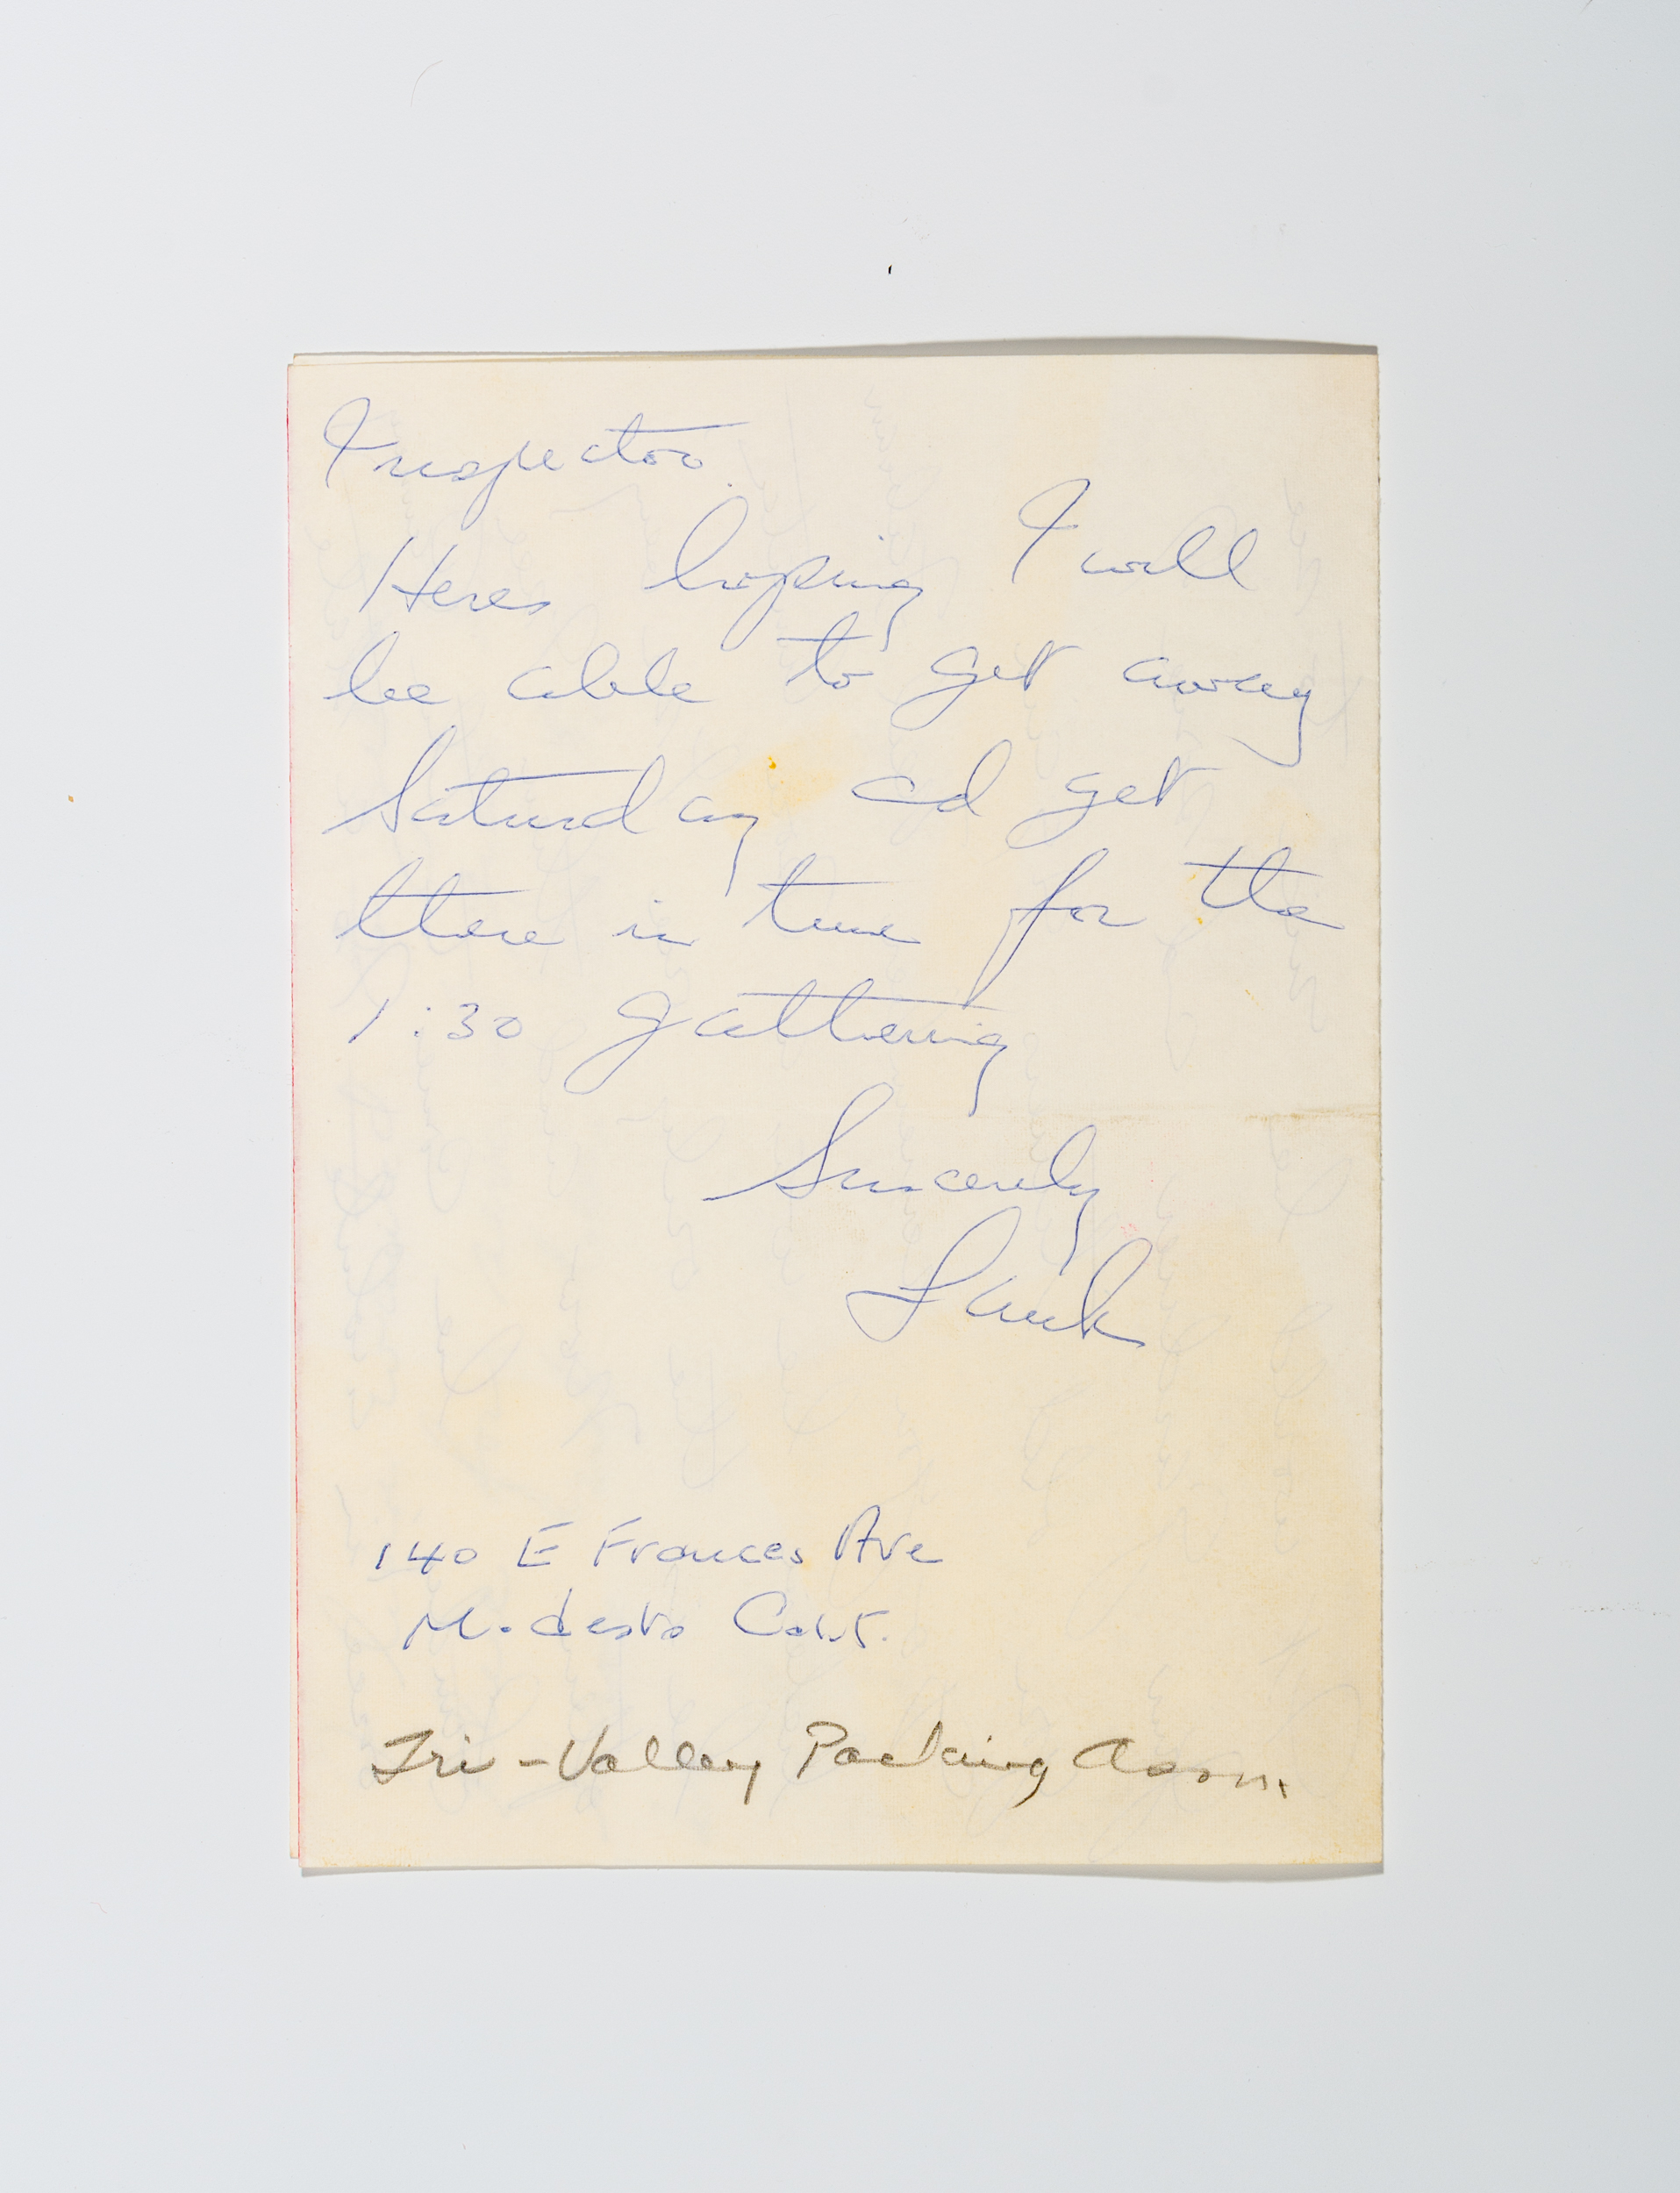 Inspector.
Heres hoping I will
be able to get away
Saturday ad get
there in time for the
1:30 gathering
Sincerely
140 E Frances Ave
Modesto Calif.
Tri-Valley Packing Assn.